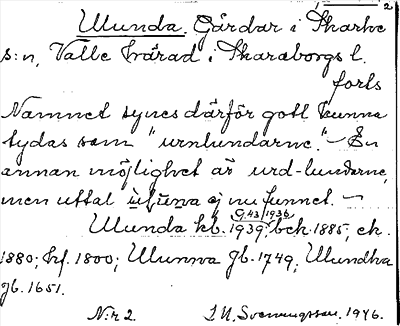 2
Ulunda. Gårdar i Skarke
s:n, Valle härad i Skaraborgs l.
forts
Namnet synes därför gott kunna
tydas som "urnlundarne." – En
annan möjlighet är urd-lundarne,
men uttal ej nu funnet. –
G.43/1936
Ulunda kb. 1939; bck. 1885, ek.
1880; hf. 1800; Ulunna gb. 1749; Ulundha
gb. 1651.
N:r 2. Svenungsson. 1946.